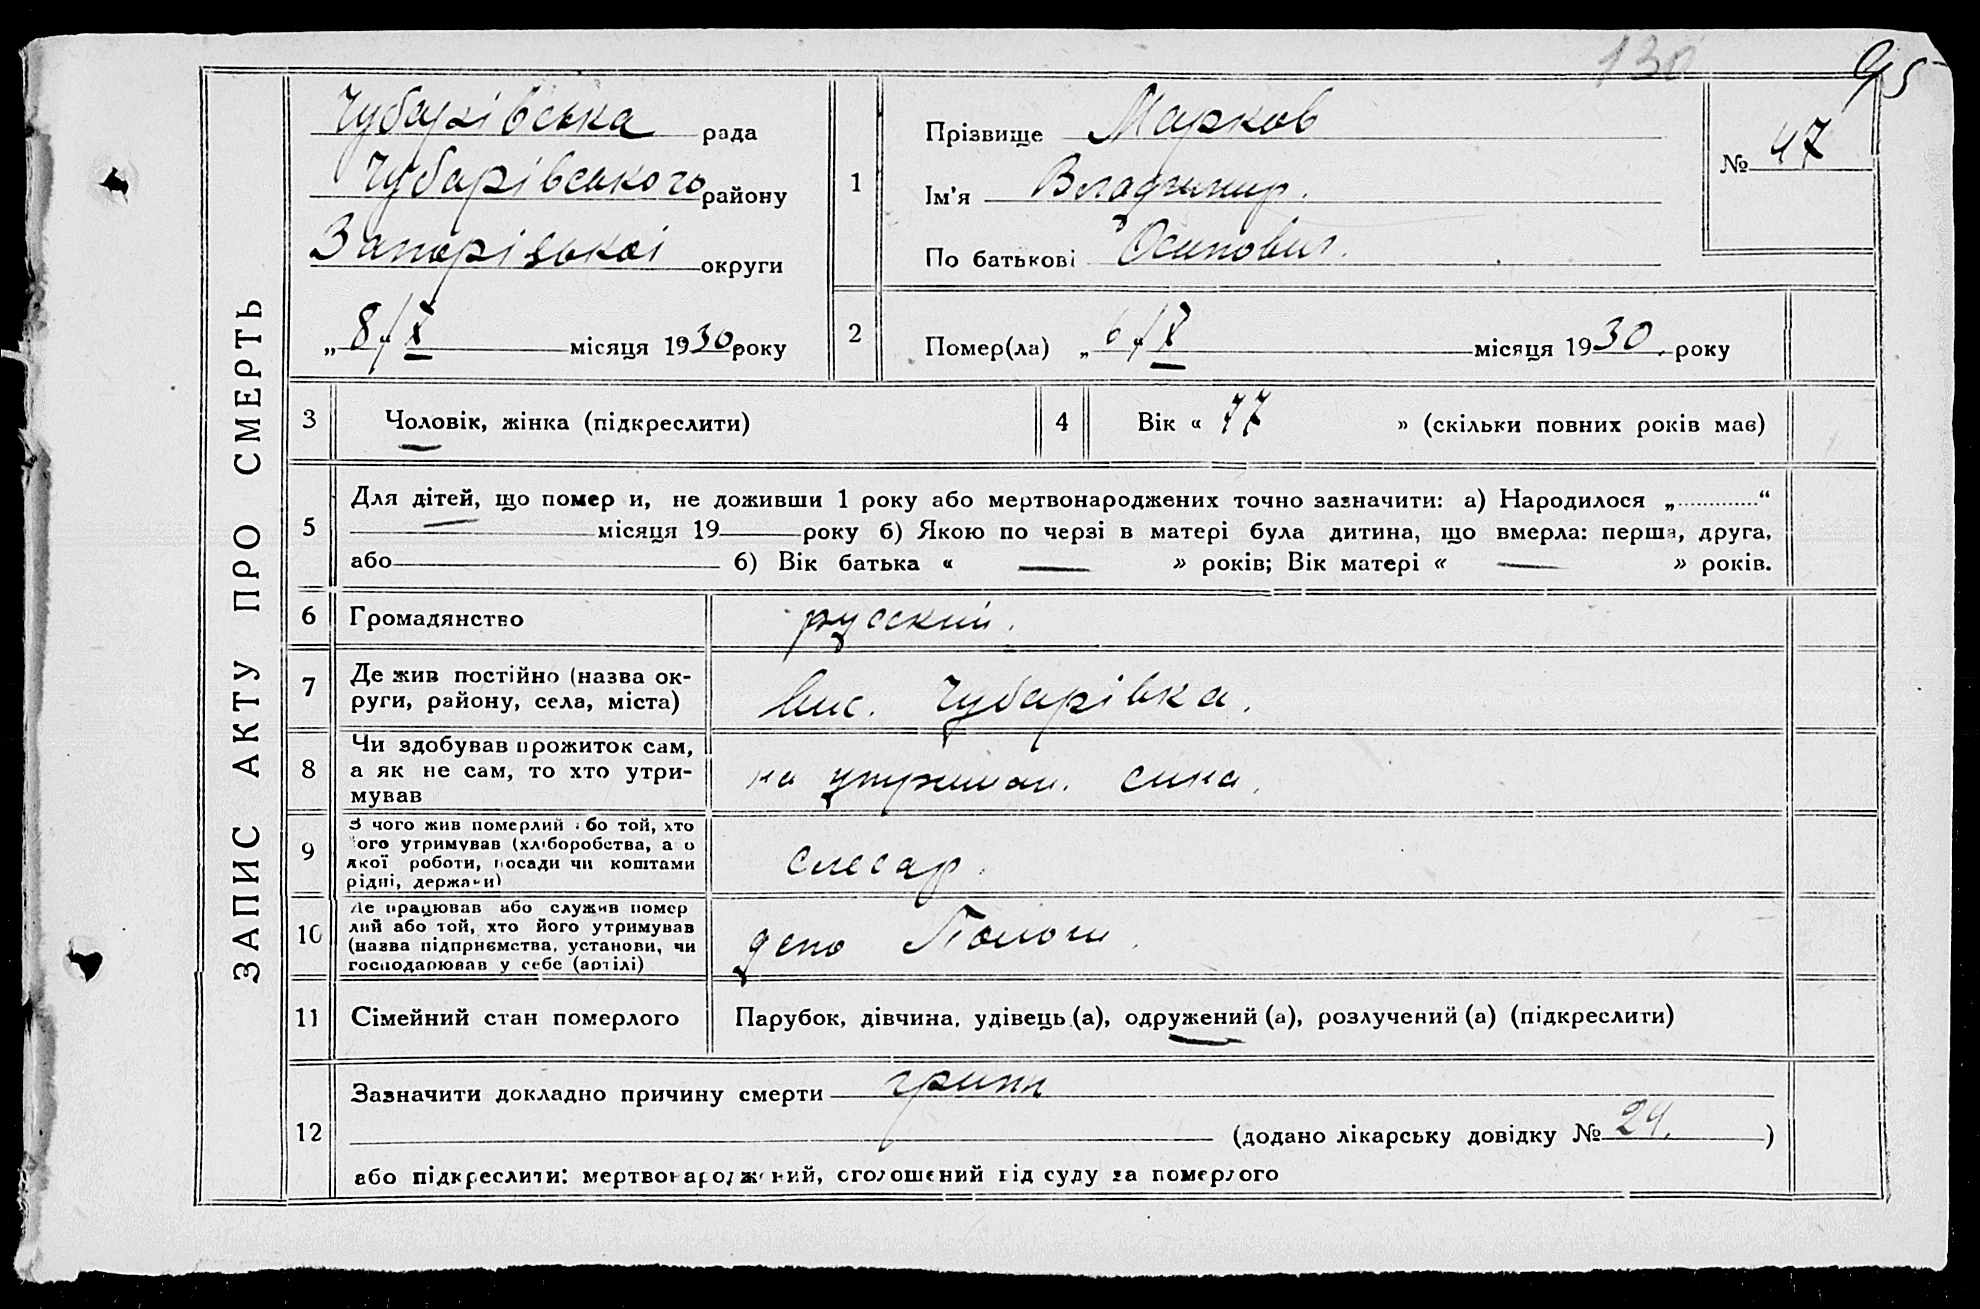 130
95
ЗАПИС АКТУ ПРО СМЕРТЬ
Чубарівська рада
Чубарівського району
Запорізької округи
„ 8 " X місяця 1930 року
1
Прізвище Марков
Ім'я Владимир.
По батькові Осипович.
№ 47
2
Помер(ла) „ 6 " X місяця 1930 року
3 Чоловік, жінка (підкреслити)
4 Вік « 77 » (скільки повних років має)
5
Для дітей, що помер и, не доживши 1 року або мертвонароджених точно зазначити: а) Народилося „ “
місяця 19 року б) Якою по черзі в матері була дитина, що вмерла: перша, друга,
або б) Вік батька « — » років; Вік матері « — » років.
6 Громадянство русский.
7 Де жив постійно (назва ок-
руги, району, села, міста)
Чубарівка.
8 Чи здобував прожиток сам,
а як не сам, то хто утри-
мував
на утриман. сина.
9 З чого жив померлий або той, хто
його утримував (хліборобства, а о
якої роботи, посади чи коштами
рідні, держави)
слесар.
10 Де працював або служив помер
лий або той, хто його утримував
(назва підприємства, установи, чи
господарював у себе (артілі)
депо Пологи.
11 Сімейний стан померлого Парубок, дівчина, удівець (а), одружений (а), розлучений (а) (підкреслити)
12
Зазначити докладно причину смерти грипп
(додано лікарську довідку № 24. )
або підкреслити: мертвонароджений, оголошений від суду за померлого